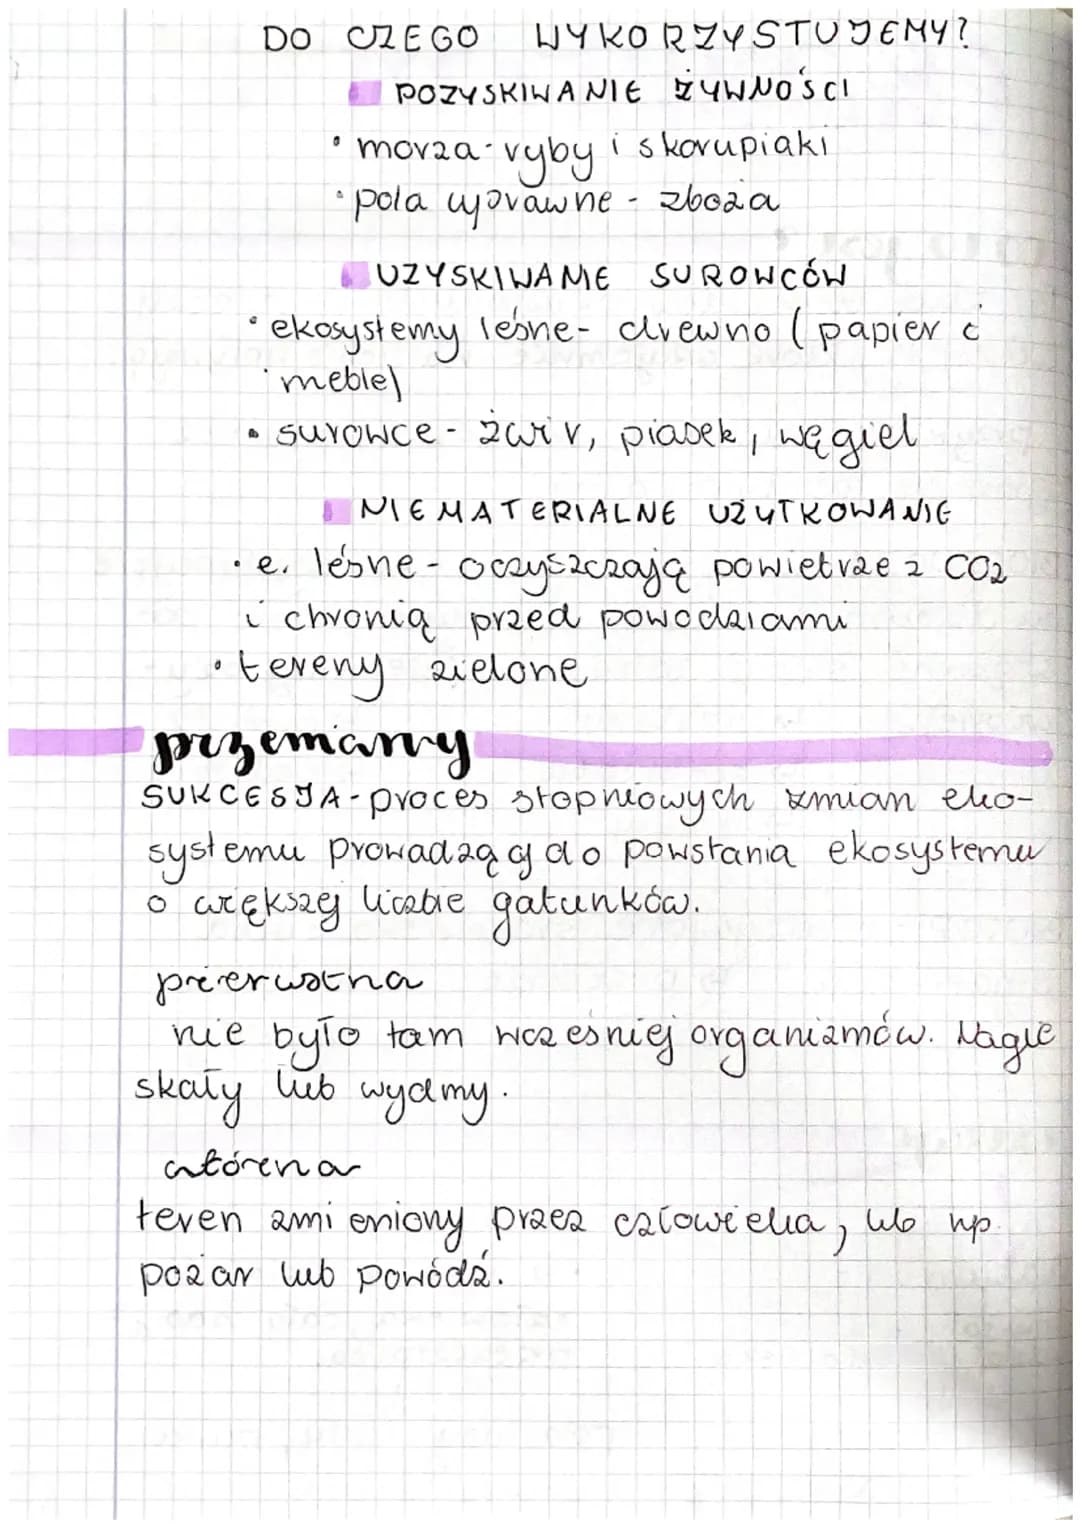 DO CZEGO WYKORZYSTUJEMY?
POZYSKIWANIE ŻYWNOŚCI
• morza - ryby i skorupiaki
• pola uprawne - zboża
UZYSKIWANIE SUROWCÓW
• ekosystemy leśne - drewno (papier i
• meble)
• surowce - żwir, piasek, węgiel
NIEMATERIALNE UŻYTKOWANIE
• e. leśne - oczyszczają powietrze z CO2
i chronią przed powodziami
• tereny zielone
przemiany
SUKCESJA - proces stopniowych zmian eko-
systemu prowadzący do powstania ekosystemu
o większej liczbie gatunków.
pierwotna
nie było tam wcześniej organizmów. Nagie
skały lub wydmy.
wtórna
teren zmieniony przez człowieka, lub np.
pożar lub powódź.